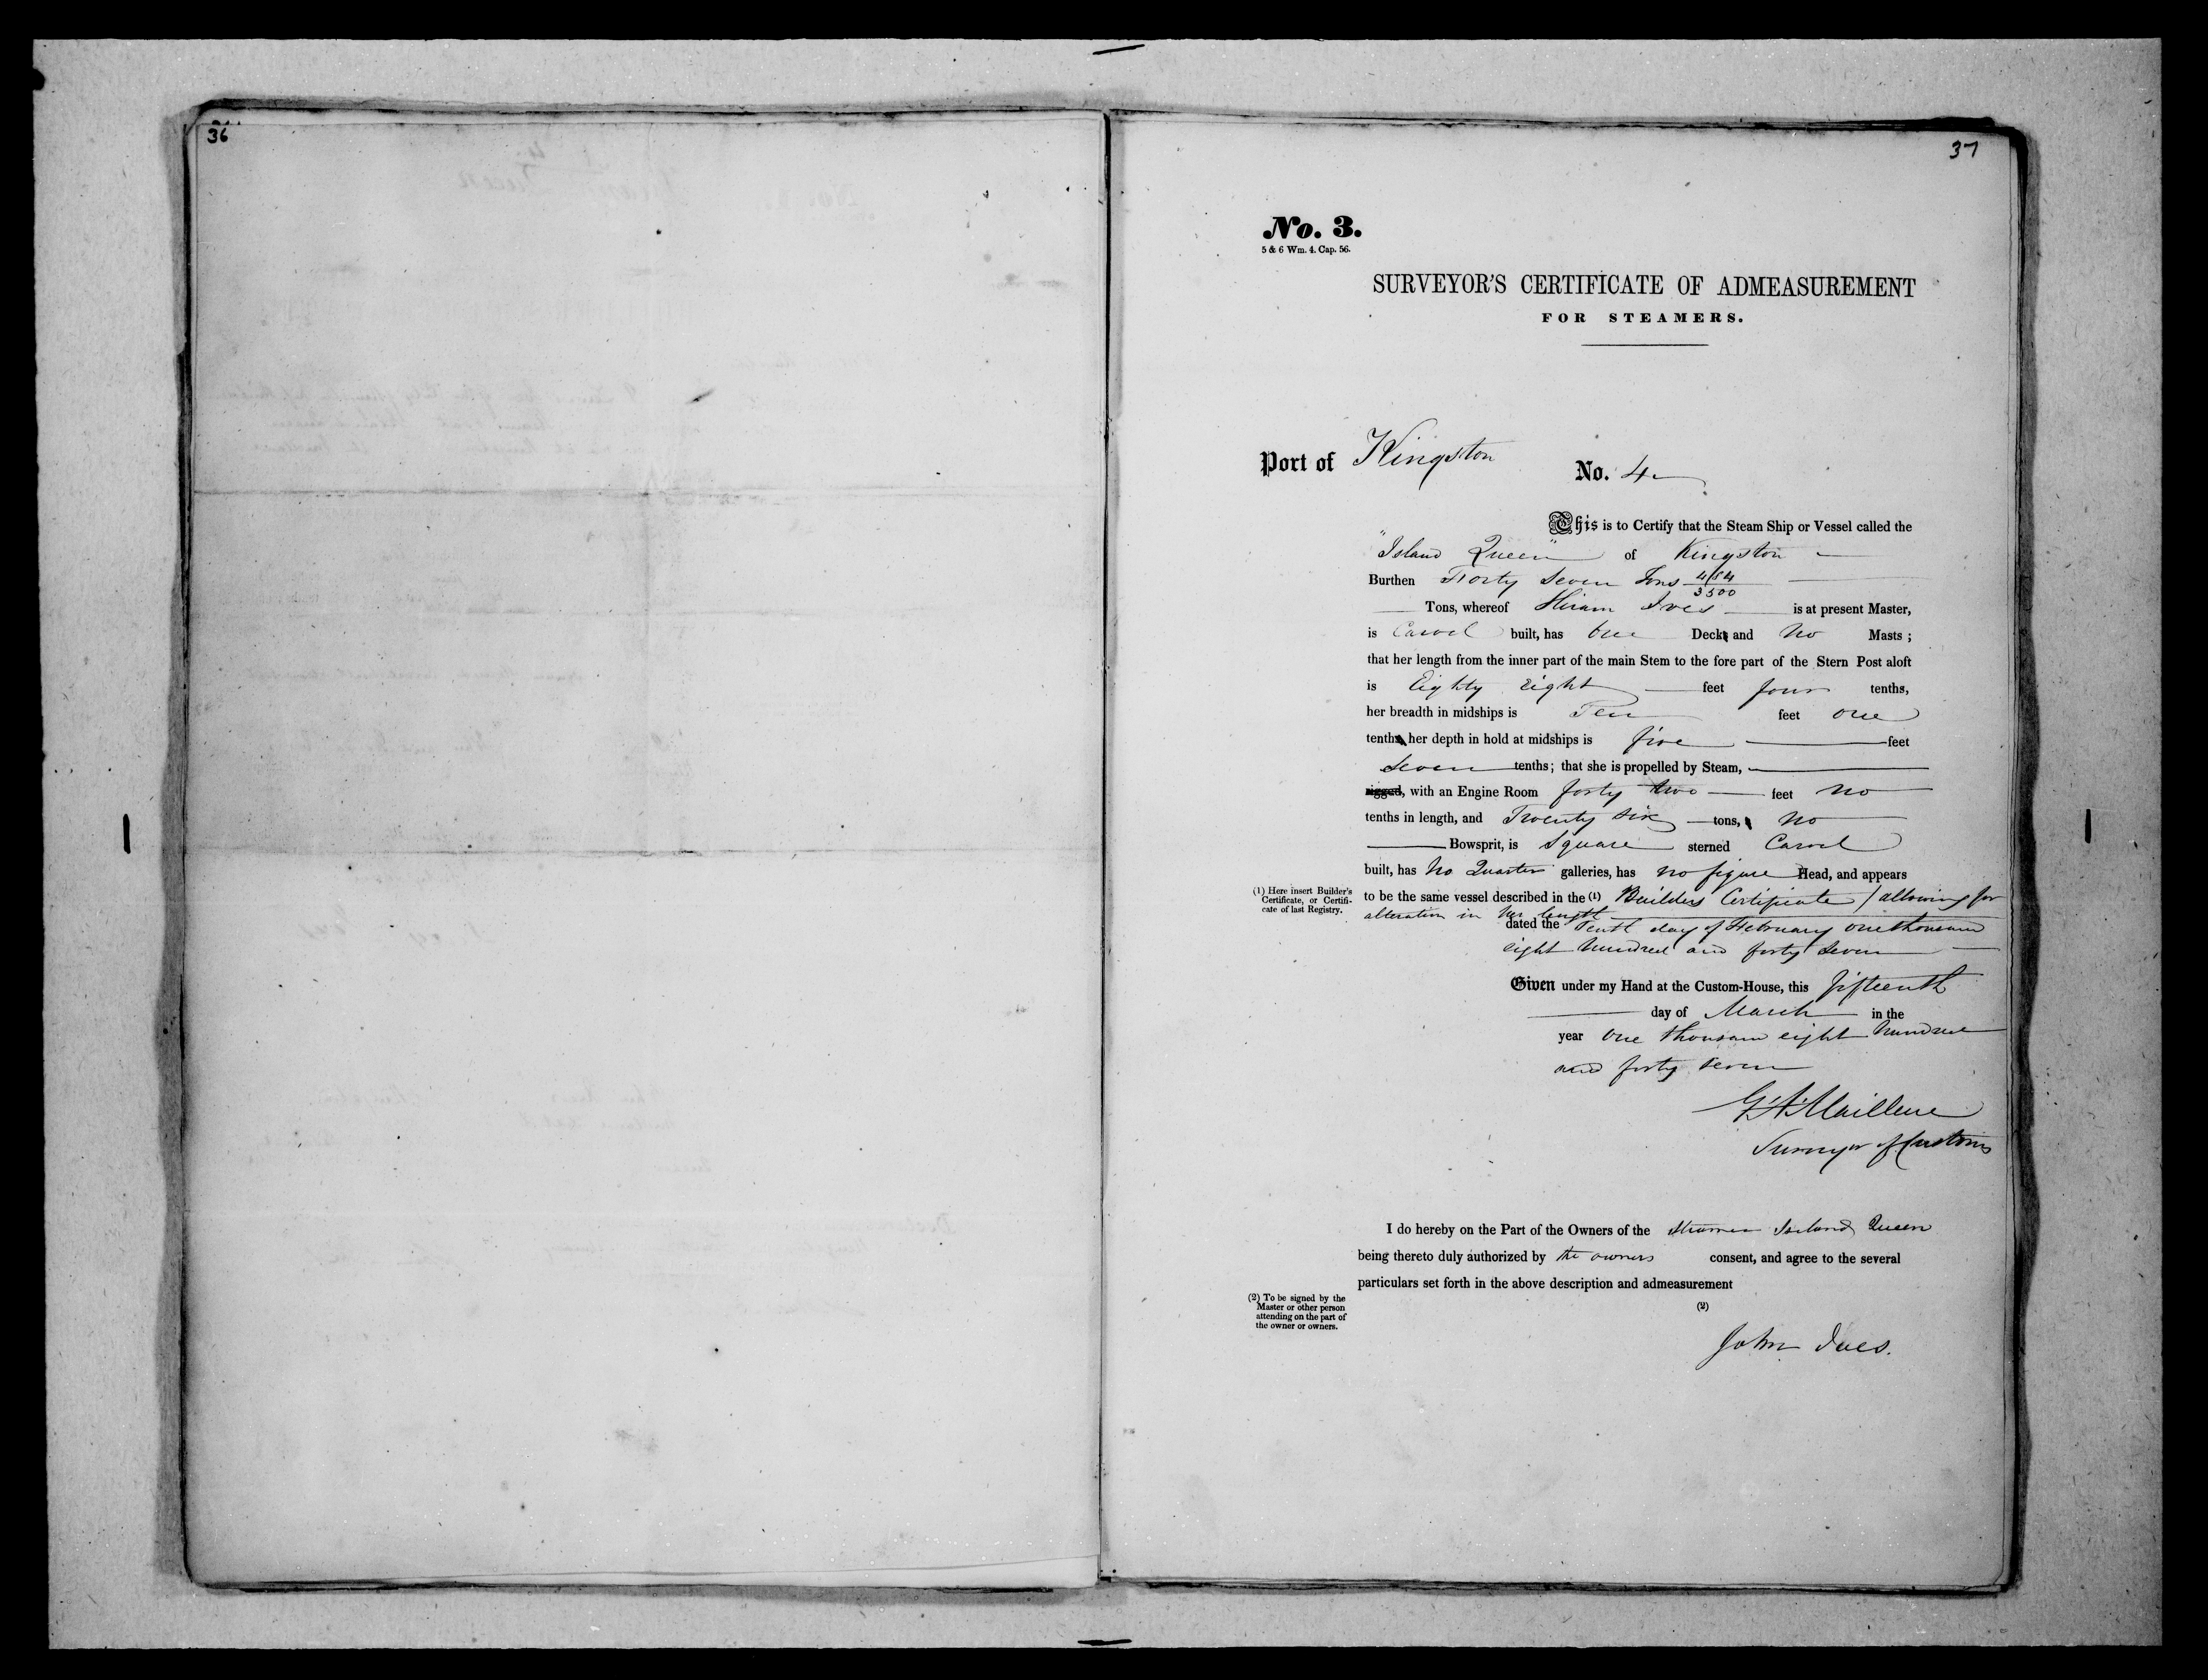 36
37
No. 3.
5 & 6 Wm. 4. Cap. 56.
SURVEYOR'S CERTIFICATE OF ADMEASUREMENT
FOR STEAMERS.
Port of Kingston No. 4
This is to Certify that the Steam Ship or Vessel called the
"Island Queen" of Kingston
Burthen Forty Seven Tons
3500
Tons, whereof Hiram Ives is at present Master,
is Carvel built, has One Deck and No Masts;
that her length from the inner part of the main Stem to the fore part of the Stern Post aloft
is Eighty Eight feet four tenths,
her breadth in midships is Ten feet one
tenth her depth in hold at midships is five feet
Seven tenths; that she is propelled by Steam,
rigged, with an Engine Room forty two feet no
tenths in length, and Twenty Six tons, No
Bowsprit, is Square sterned Carvel
built, has No Quarter galleries, has no figure Head, and appears
(1) Here insert Builder's
Certificate, or Certifi-
cate of last Registry.
to be the same vessel described in the (1) Builders Certificate / allowing for
alteration in her length
dated the Tenth day of February one thousand
eight hundred and forty Seven
Given under my Hand at the Custom-House, this fifteenth
day of March in the
year One thousand eight hundred
and forty seven
Surveyor of Customs
I do hereby on the Part of the Owners of the Steamer Island Queen
being thereto duly authorized by the owners consent, and agree to the several
particulars set forth in the above description and admeasurement
(2) To be signed by the
Master or other person
attending on the part of
the owner or owners.
(2)
John Ives.